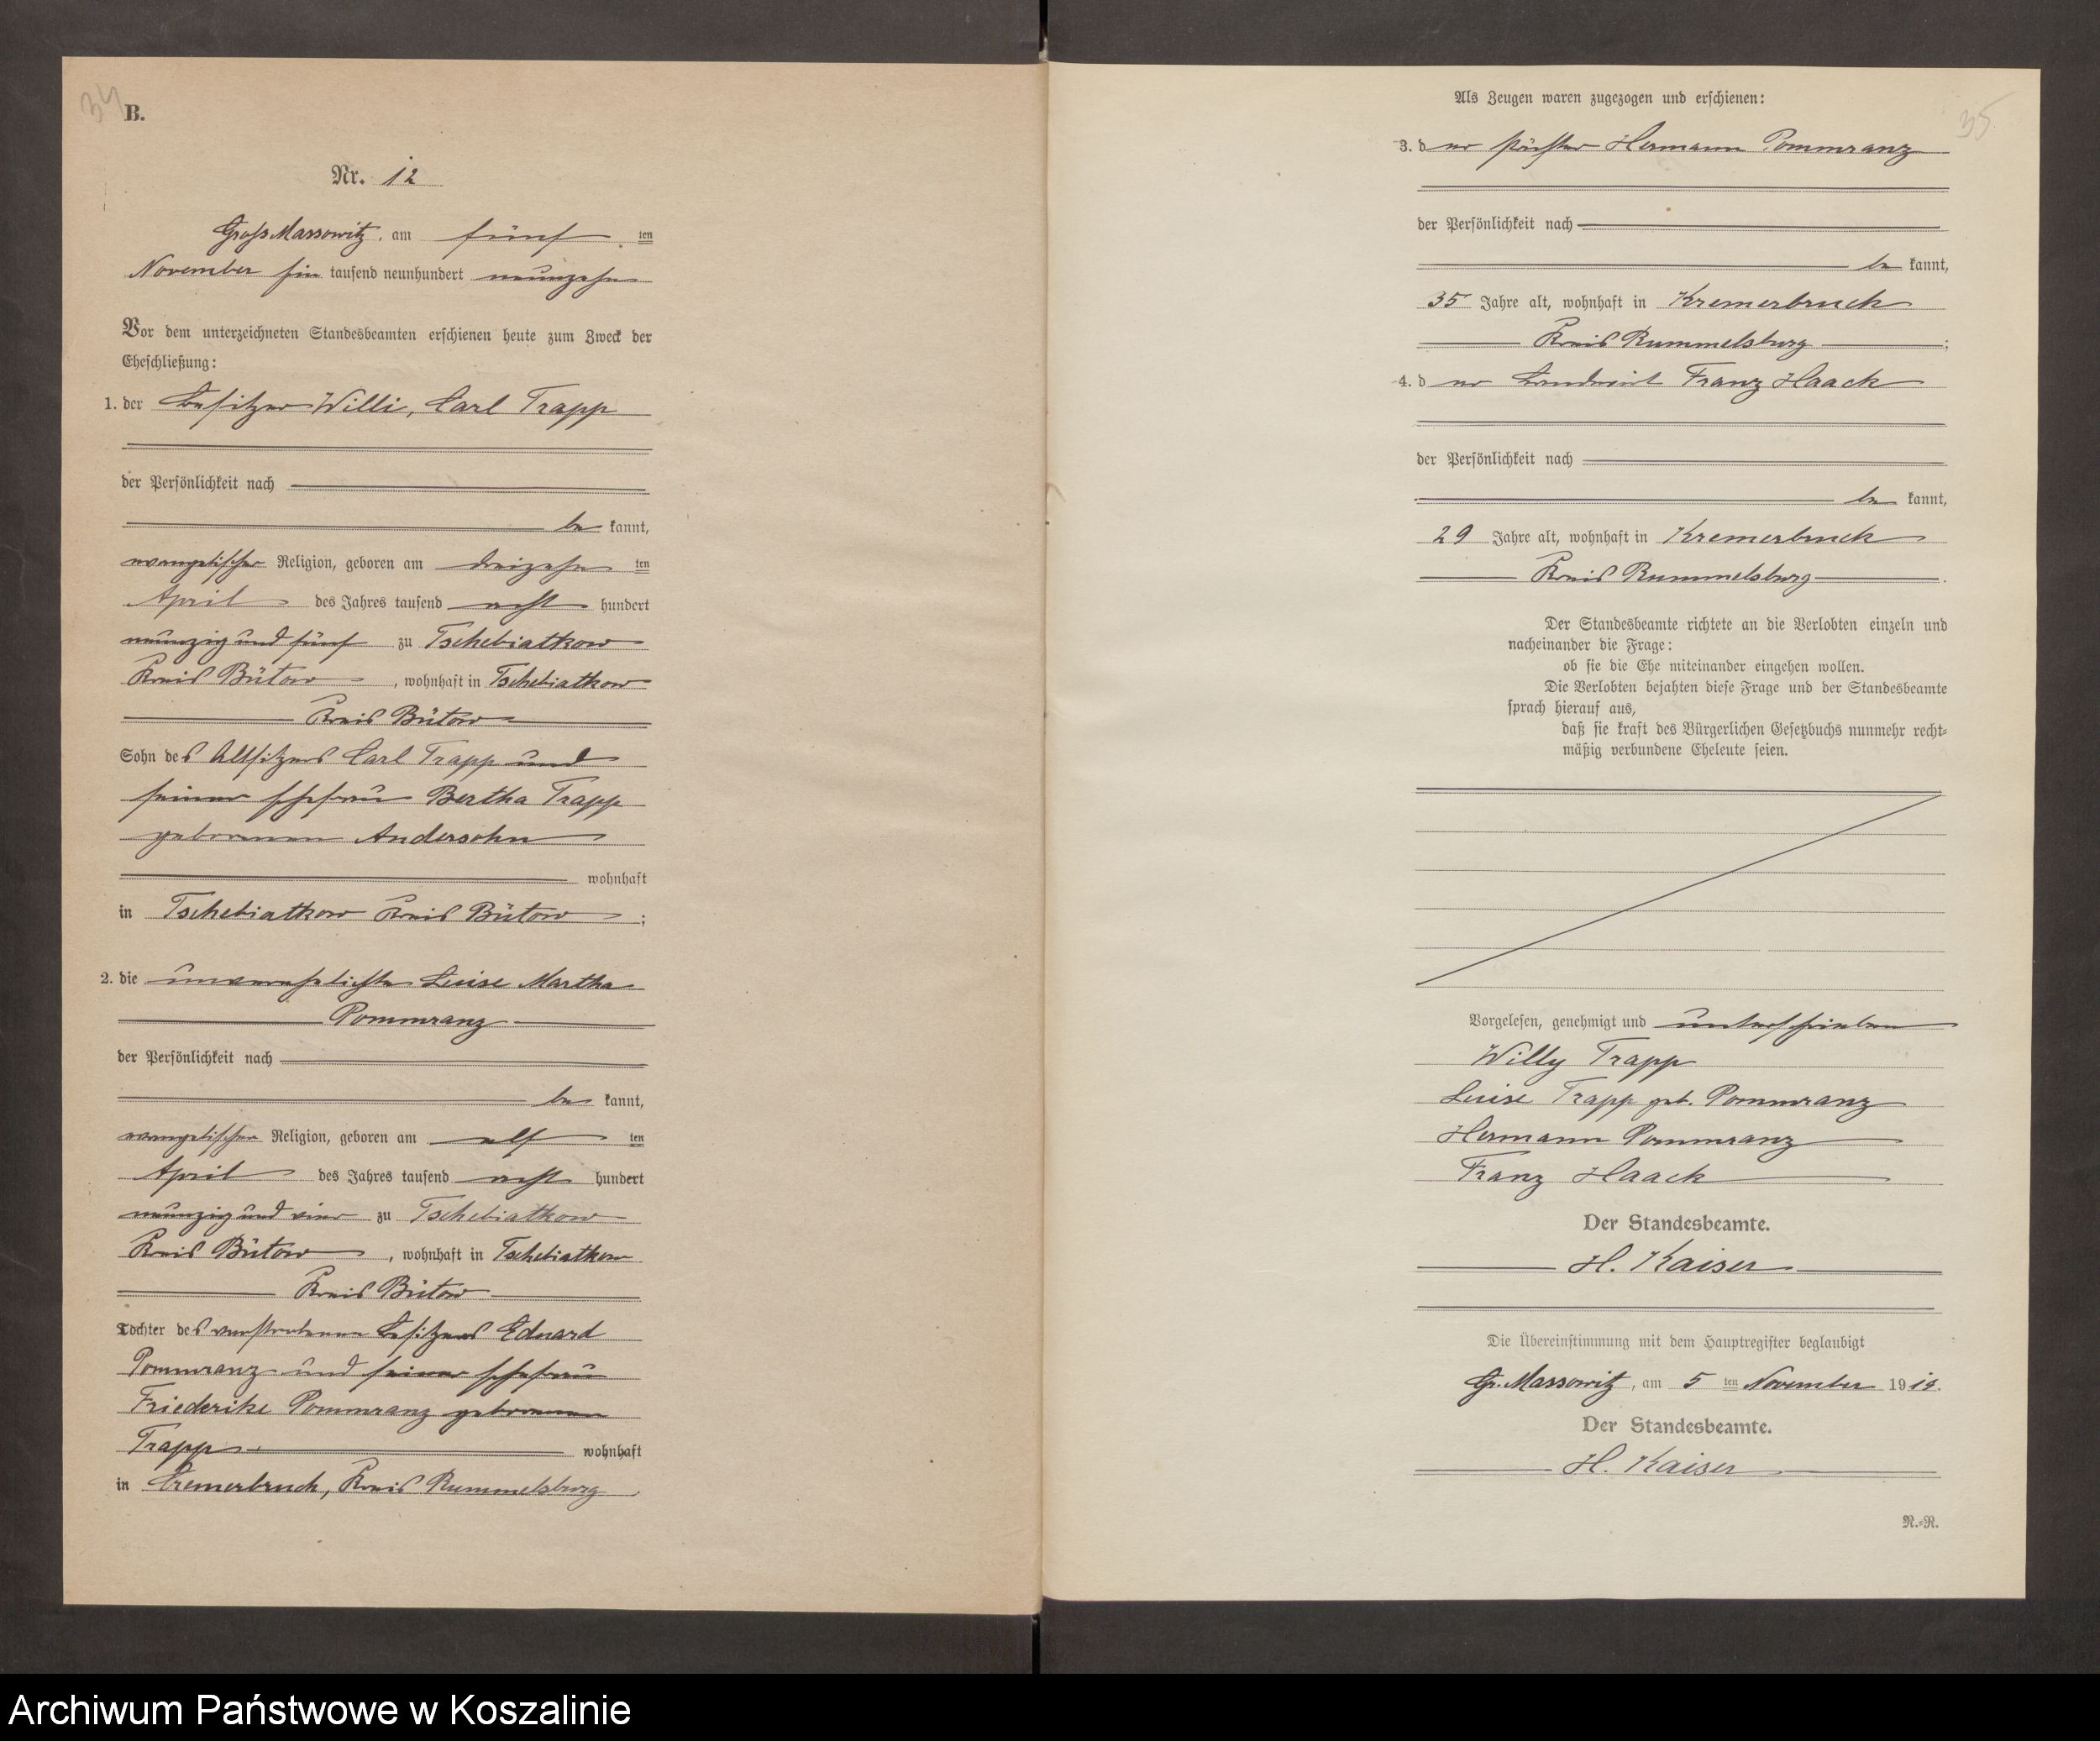 34
B.
Nr. 12
Gross Massowitz, am fünf ten
November ein tausend neunhundert neunzehn
Vor dem unterzeichneten Standesbeamten erschienen heute zum Zweck der
Eheschließung:
1. der Besitzer Willi, Carl Trapp
der Persönlichkeit nach
be kannt,
evangelischer Religion, geboren am dreizehn ten
April des Jahres tausend acht hundert
neunzig und fünf zu Tschebiatkow
Kreis Bütow, wohnhaft in Tschebiatkow
Kreis Bütow
Sohn des Altsitzers Carl Trapp und
seiner Ehefrau Bertha Trapp
geborenen Andersohn
wohnhaft
in Tschebiatkow Kreis Bütow ;
2. die unverehelichte Luise Martha
Pommranz
der Persönlichkeit nach
be kannt,
evangelischer Religion, geboren am elf ten
April des Jahres tausend acht hundert
neunzig und vier zu Tschebiatkow
Kreis Bütow, wohnhaft in Tschebiatkow
Kreis Bütow
Tochter des verstorbenen Besitzers Eduard
Pommranz und seiner Ehefrau
Friederike Pommranz geborenen
Trapp wohnhaft
in Cremerbruch, Kreis Rummelsburg
35
Als Zeugen waren zugezogen und erschienen:
3. der Hermann Pommranz
der Persönlichkeit nach
be kannt,
35 Jahre alt, wohnhaft in Kremerbruch
Kreis Rummelsburg ;
4. der Landwirt Franz Haack
der Persönlichkeit nach
be kannt,
29 Jahre alt, wohnhaft in Kremerbruch
Kreis Rummelsburg.
Der Standesbeamte richtete an die Verlobten einzeln und
nacheinander die Frage:
ob sie die Ehe miteinander eingehen wollen.
Die Verlobten bejahten diese Frage und der Standesbeamte
sprach hierauf aus,
daß sie kraft des Bürgerlichen Gesetzbuchs nunmehr recht-
mäßig verbundene Eheleute seien.
Vorgelesen, genehmigt und unterschrieben
Willy Trapp
Luise Trapp geb. Pommranz
Hermann Pommranz
Franz Haack
Der Standesbeamte.
H. Kaiser
Die Übereinstimmung mit dem Hauptregister beglaubigt
Gr. Massowitz, am 5 ten November 1919.
Der Standesbeamte.
H. Kaiser
R.-R.
Archiwum Państwowe w Koszalinie